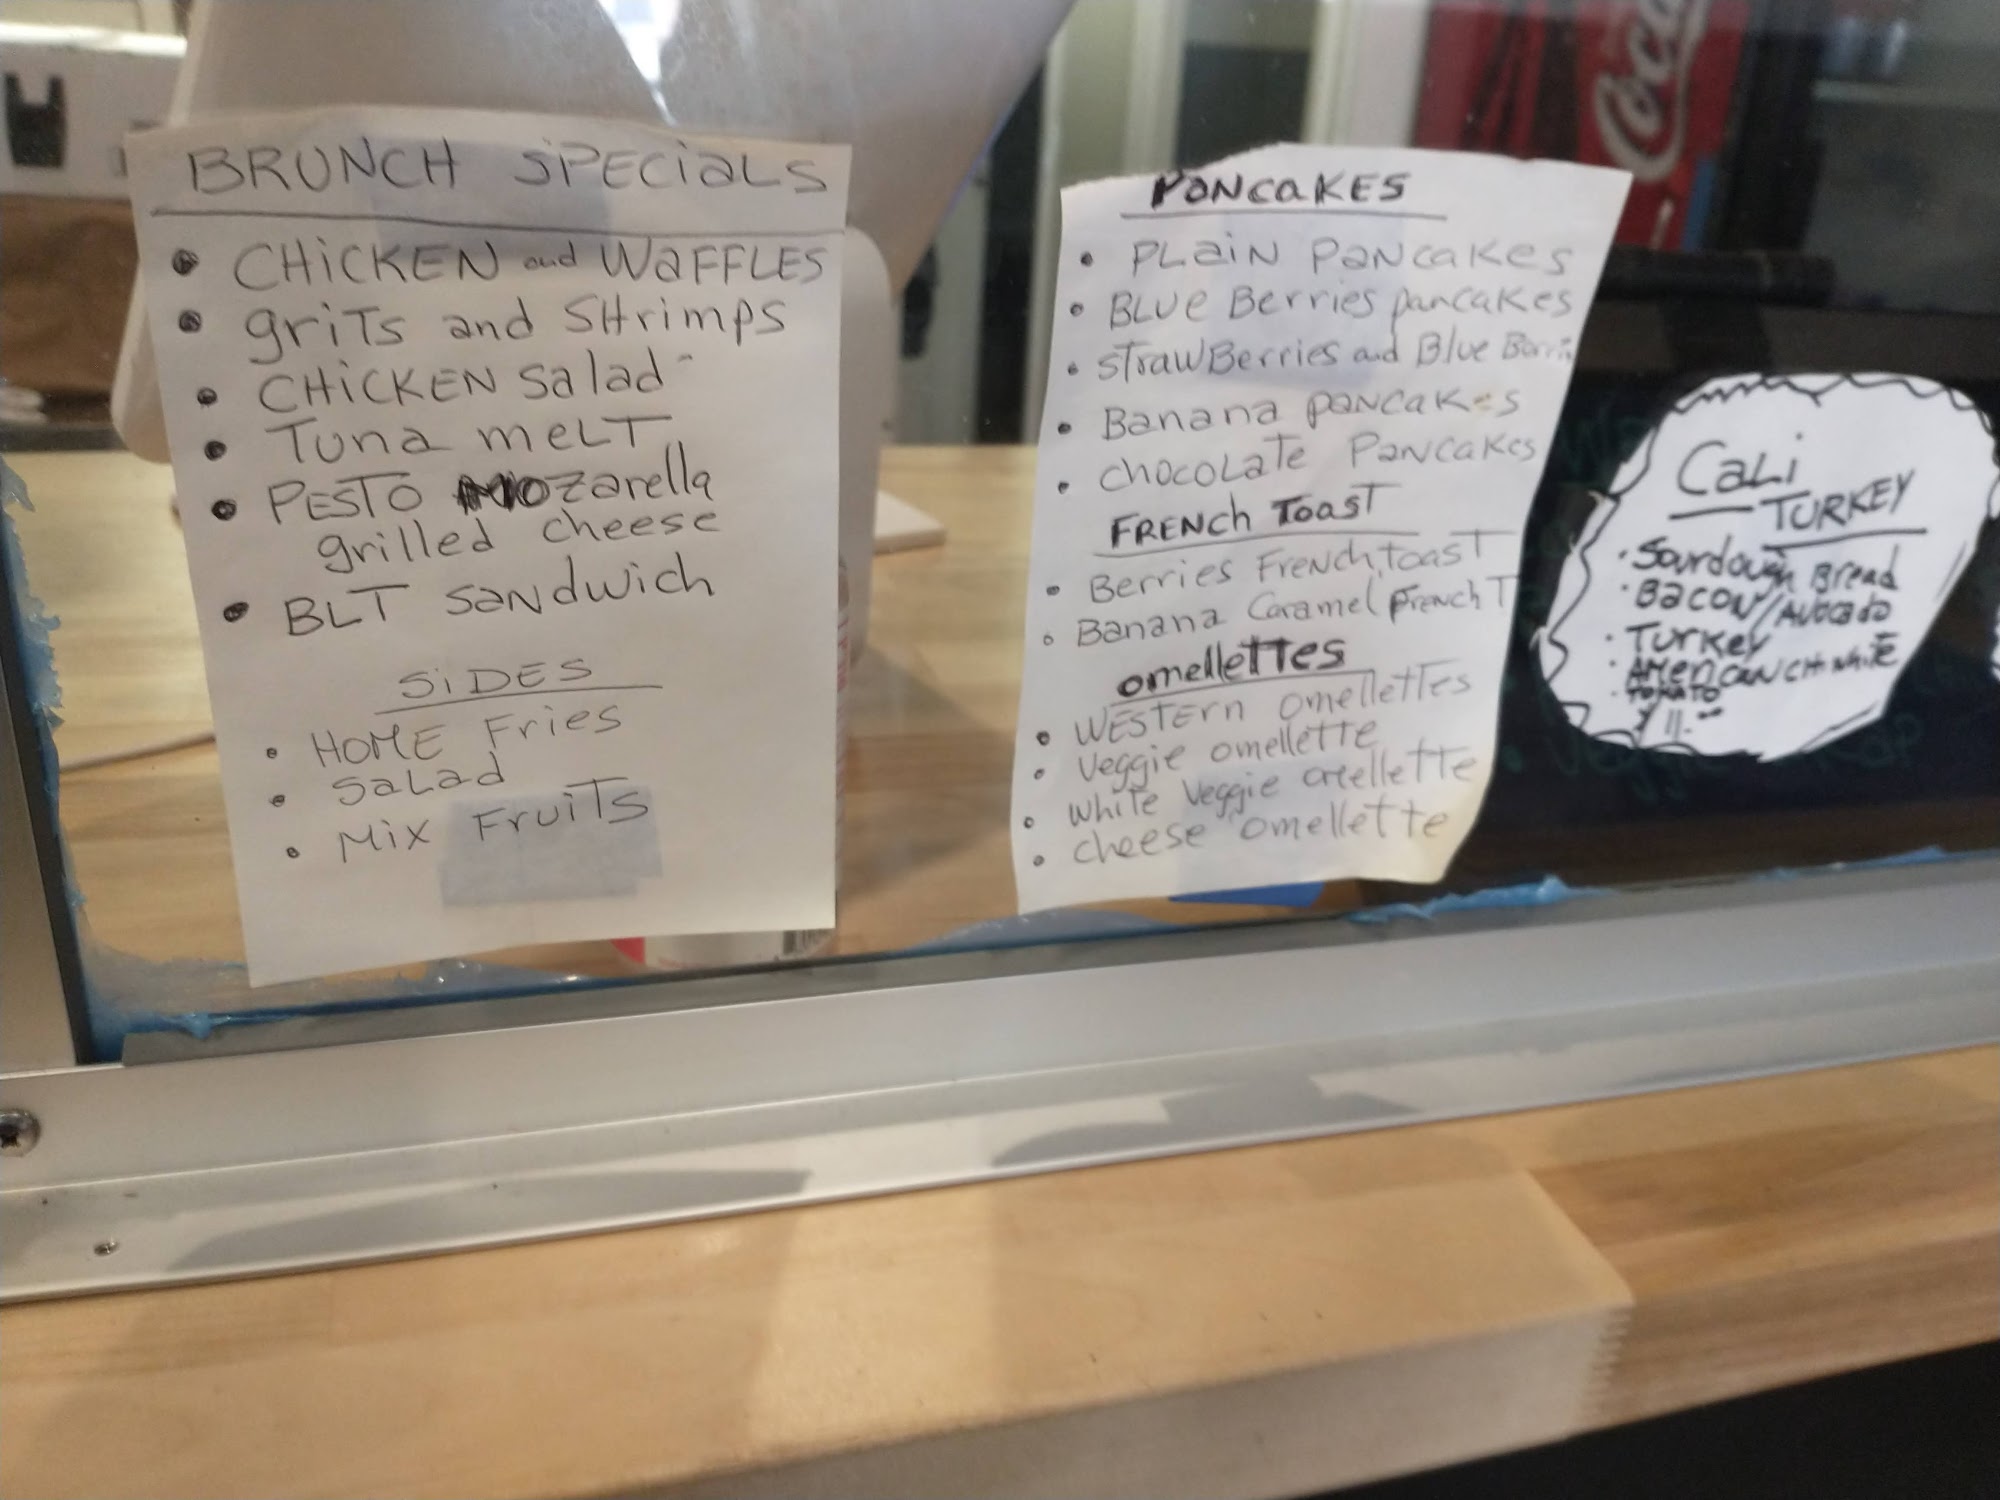 BRUNCH SPECIALS
• CHICKEN and WAFFLES
• grits and SHrimps
• CHICKEN salad
• Tuna melt
• PESTO MOzarella
grilled cheese
• BLT Sandwich
SiDES
• HOME Fries
• Salad
• Mix Fruits
PANCAKES
• Plain Pancakes
• Blue Berries pancakes
• strawBerries and Blue Berri
• Banana pancakes
• chocolate Pancakes
FRENCh Toast
• Berries French toast
• Banana Caramel French T
omellettes
• WESTERN omellettes
• Veggie omellette
• white Veggie omellette
• cheese omellette
Cali
TURKEY
• Sourdough Bread
• Bacon/Avocado
• Turkey
• American CH white
• Tomato
$ 11.00
Coca